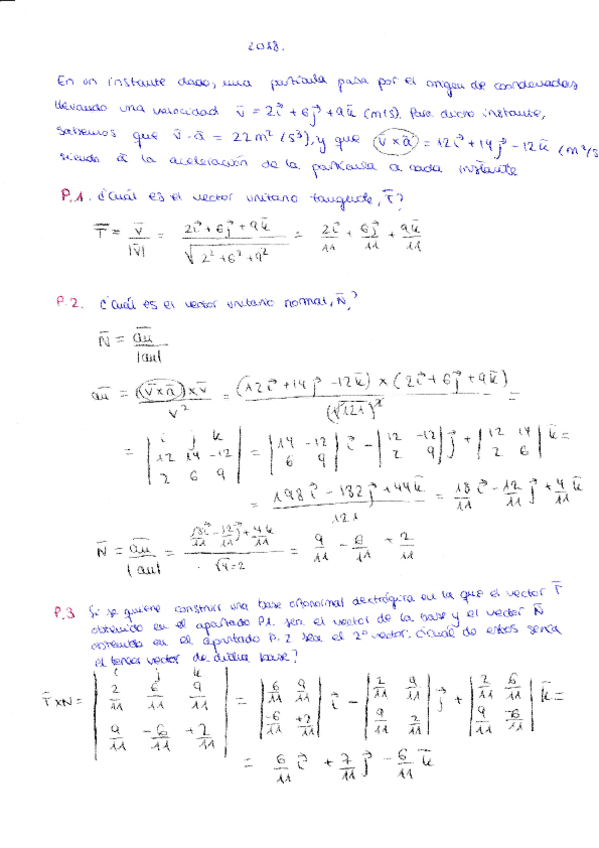 2018.
En un instante dado, una partícula pasa por el origen de coordenadas
llevando una velocidad v̄ = 2i⃗ + 6j⃗ + 9k̄ (m/s). Para dicho instante,
sabemos que v̄·ā = 22m² (s³), y que (v̄×ā) = 12i⃗ + 14j⃗ - 12k̄ (m²/s
siendo ā la aceleración de la partícula a cada instante
P.1. ¿Cuál es el vector unitario tangente, T̄?
T̄ = v̄/|v̄| = (2i⃗ + 6j⃗ + 9k̄)/√(2² + 6² + 9²) = 2i⃗/11 + 6j⃗/11 + 9k̄/11
P.2. ¿Cuál es el vector unitario normal, N̄?
N̄ = āN/|aN|
āN = ((v̄×ā)×v̄)/v² = ((12i⃗ + 14j⃗ - 12k̄) × (2i⃗ + 6j⃗ + 9k̄))/(√121)² =
= |i j k; 12 14 -12; 2 6 9| = |14 -12; 6 9| i⃗ - |12 -12; 2 9| j⃗ + |12 14; 2 6| k̄ =
= (198i⃗ - 132j⃗ + 44k̄)/121 = 18/11 i⃗ - 12/11 j⃗ + 4/11 k̄
N̄ = āN/|aN| = (18i⃗/11 - 12j⃗/11 + 4k̄/11)/√4=2 = 9/11 - 6/11 + 2/11
P.3 Si se quiere construir una base ortonormal dextrógira en la que el vector T̄
obtenido en el apartado P1. sea el vector de la base y el vector N̄
obtenido en el apartado P.2 sea el 2º vector. ¿cuál de estos sería
el tercer vector de dicha base?
T̄×N̄ = |i j k; 2/11 6/11 9/11; 9/11 -6/11 +2/11| = |6/11 9/11; -6/11 +2/11| i⃗ - |2/11 9/11; 9/11 2/11| j⃗ + |2/11 6/11; 9/11 -6/11| k̄ =
= 6/11 i⃗ + 7/11 j⃗ - 6/11 k̄